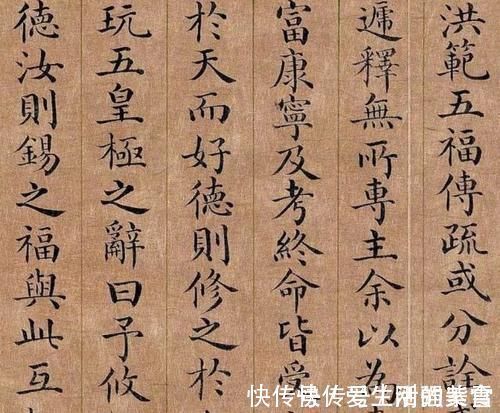 洪範五福傳疏或分詮
遞釋無所專主余以為
富康寧及考終命皆受
於天而好德則修之於
玩五皇極之辭曰予攸
德汝則錫之福與此互
快传号